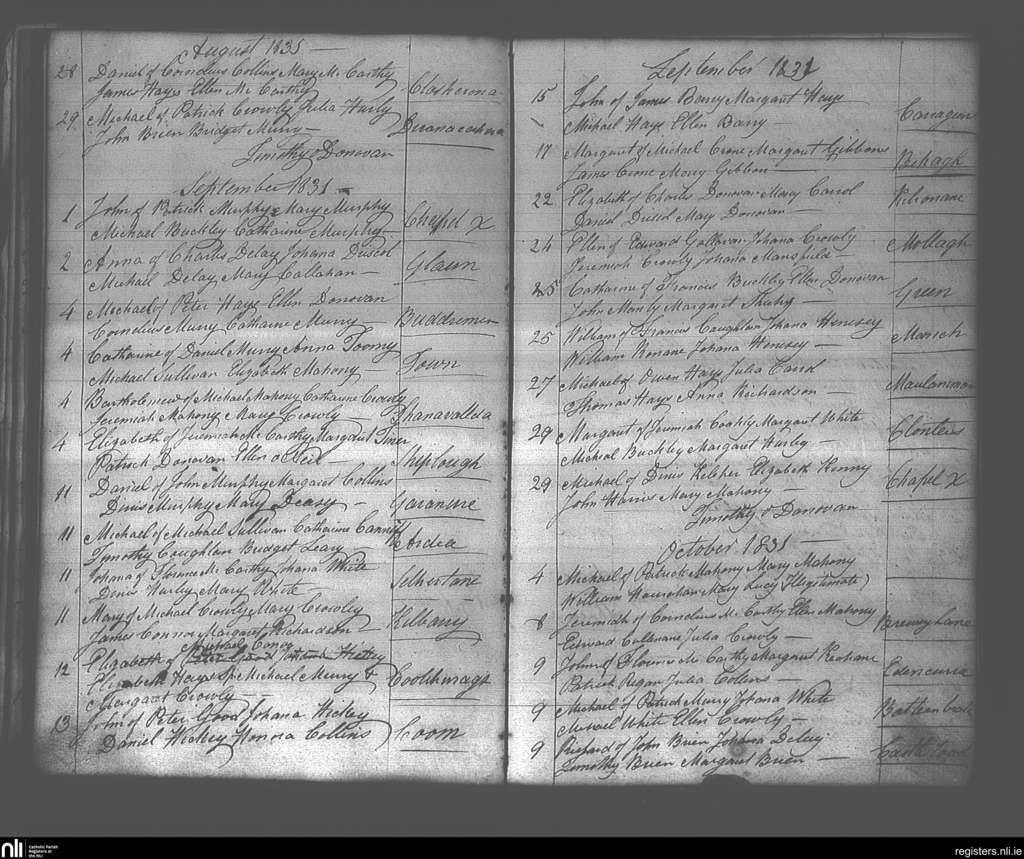 August 1835 —
28 Daniel of Cornelius Collins Mary Mc Carthy
James Hayes Ellen Mc Carthy Clasherona
29 Michael of Patrick Crowly Julia Hurly
John Brien Bridget Murry —
Timothy O Donovan
September 1831 —
1 John of Patrick Murphy Mary Murphy
Michael Buckley Catharine Murphy Chapel X
2 Anna of Charles Delay Johana
Michael Delay Mary Callahan — Glaun
4 Michael of Peter Hays Ellen Donovan
Cornelius Murry Catharine Murry
4 Catharine of Daniel Murry Anna Toomy
Michael Sullivan Elizabeth Mahony — Town
4 Bartholomew of Michael Mahony Catharine Crowly
Jeremiah Mahony Mary Crowly —
4 Elizabeth of Jeremiah Mc Carthy Margaret
Patrick Donovan Ellen Shiplough
11 Daniel of John Murphy Margaret Collins
Denis Murphy Mary Deasy —
11 Michael of Michael Sullivan Catharine
Timothy Coughlan Bridget Leary Ardea
11 Johana of Florence Mc Carthy Johana White
Denis Hurly Mary White
11 Mary of Michael Crowly Mary Crowley
James Connor Margaret Richardson — Kilbarry
12 Elizabeth of
Elizabeth Hayes Sp. Michael Murry &
Margaret Crowly —
13 John of Peter Good Johana Hickey
Daniel Hickey Honora Collins Coom
September 1831
15 John of James Barry Margaret Hays
Michael Hays Ellen Barry —
17 Margaret of Michael Crone Margaret Gibbons
James Crone Mary Gibbon Behagh
22 Elizabeth of Charles Donovan Mary Carrol
Daniel Mary Donovan — Kilronane
24 Ellen of Edward Gallivan Johana Crowly Mollagh
Jeremiah Crowly Johana Mansfield —
25 Catharine of Francis Buckley Ellen Donovan
John Manly Margaret Green
25 William of Francis Coughlan Johana Henesey
William Ronane Johana Henesey — March
27 Michael of Owen Hays Julia Carrol
Thomas Hays Anna Richardson —
29 Margaret of Jeremiah Coakly Margaret White
Michael Buckley Margaret Hurley —
29 Michael of Denis Keleher Elizabeth Kenny
John Harris Mary Mahony — Chapel X
Timothy O Donovan
October 1831 —
4 Michael of Patrick Mahony Mary Mahony
William Hourahan Mary Lucy (Illegitimate)
8 Jeremiah of Cornelius Mc Carthy Ellen Mahony
Edward Callanane Julia Crowly — Brewery Lane
9 John of Florence Mc Carthy Margaret Keohane
Patrick Regan Julia Collins — Edencurra
9 Michael of Patrick Murry Johana White
Michael White Ellen Crowly —
9 Richard of John Brien Johana Delay
Timothy Brien Margaret Brien —
nli
Catholic Parish
Registers at
the NLI
registers.nli.ie